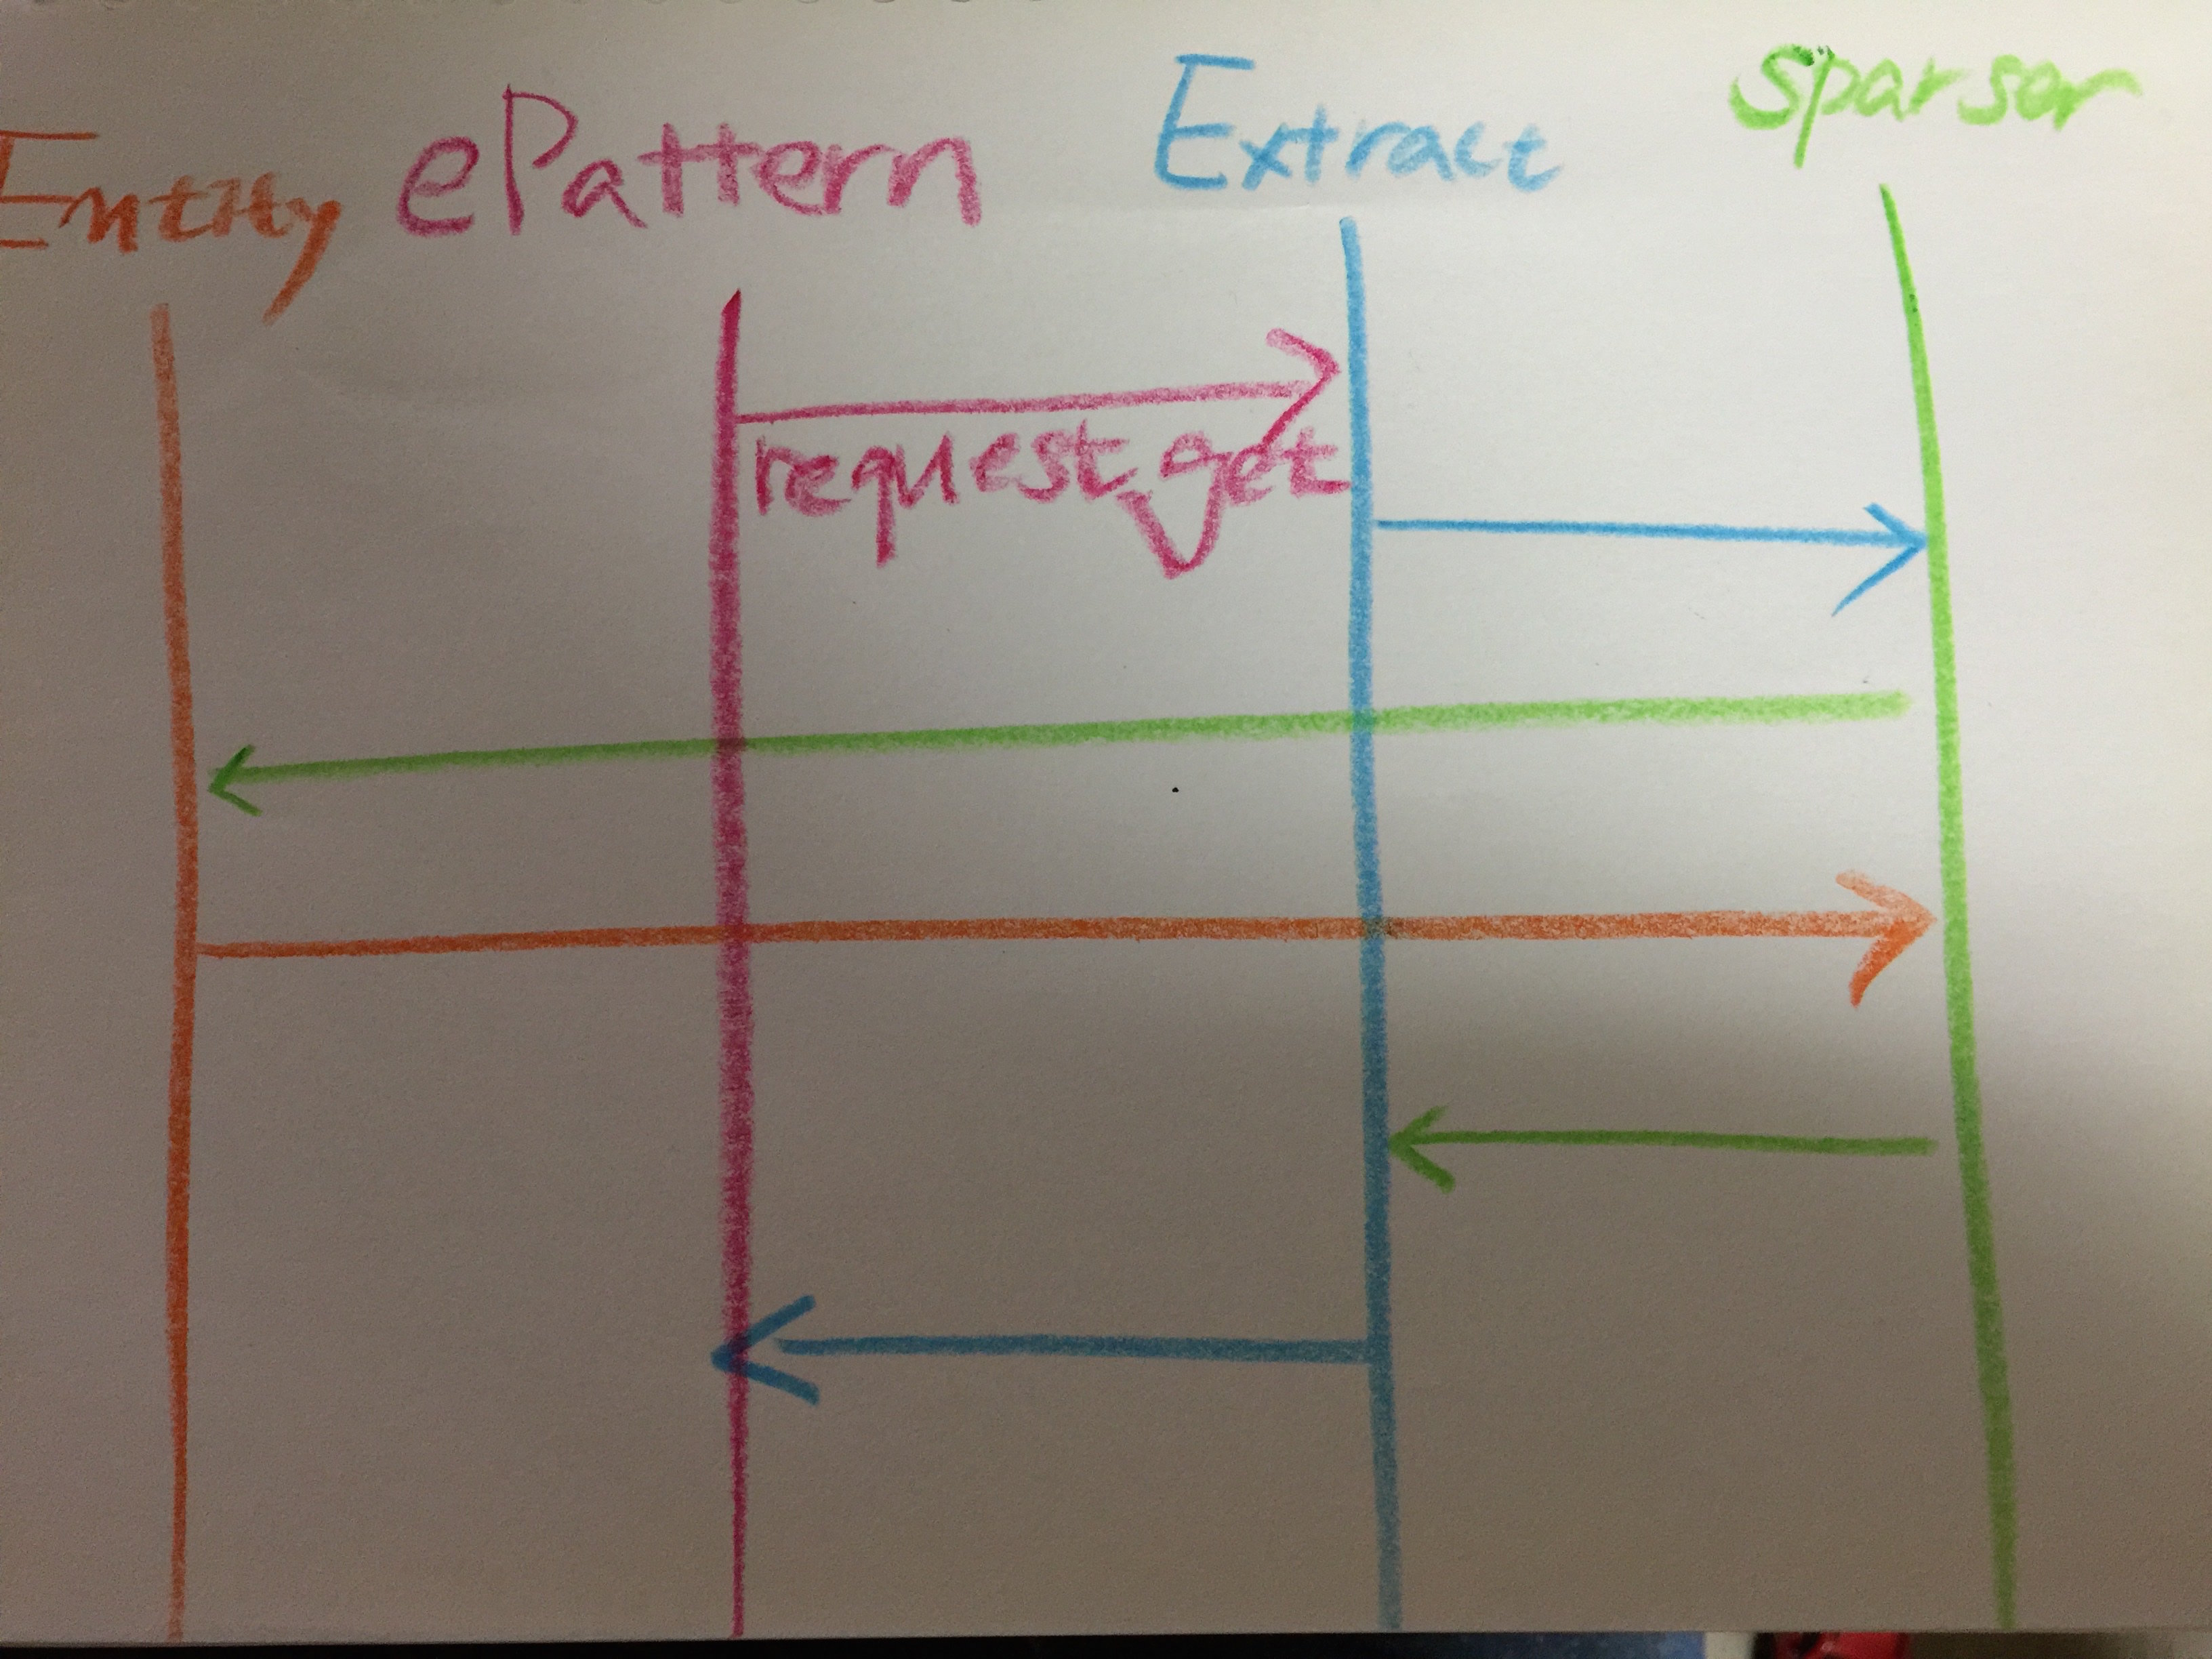 Entity ePattern Extract Sparser
request get